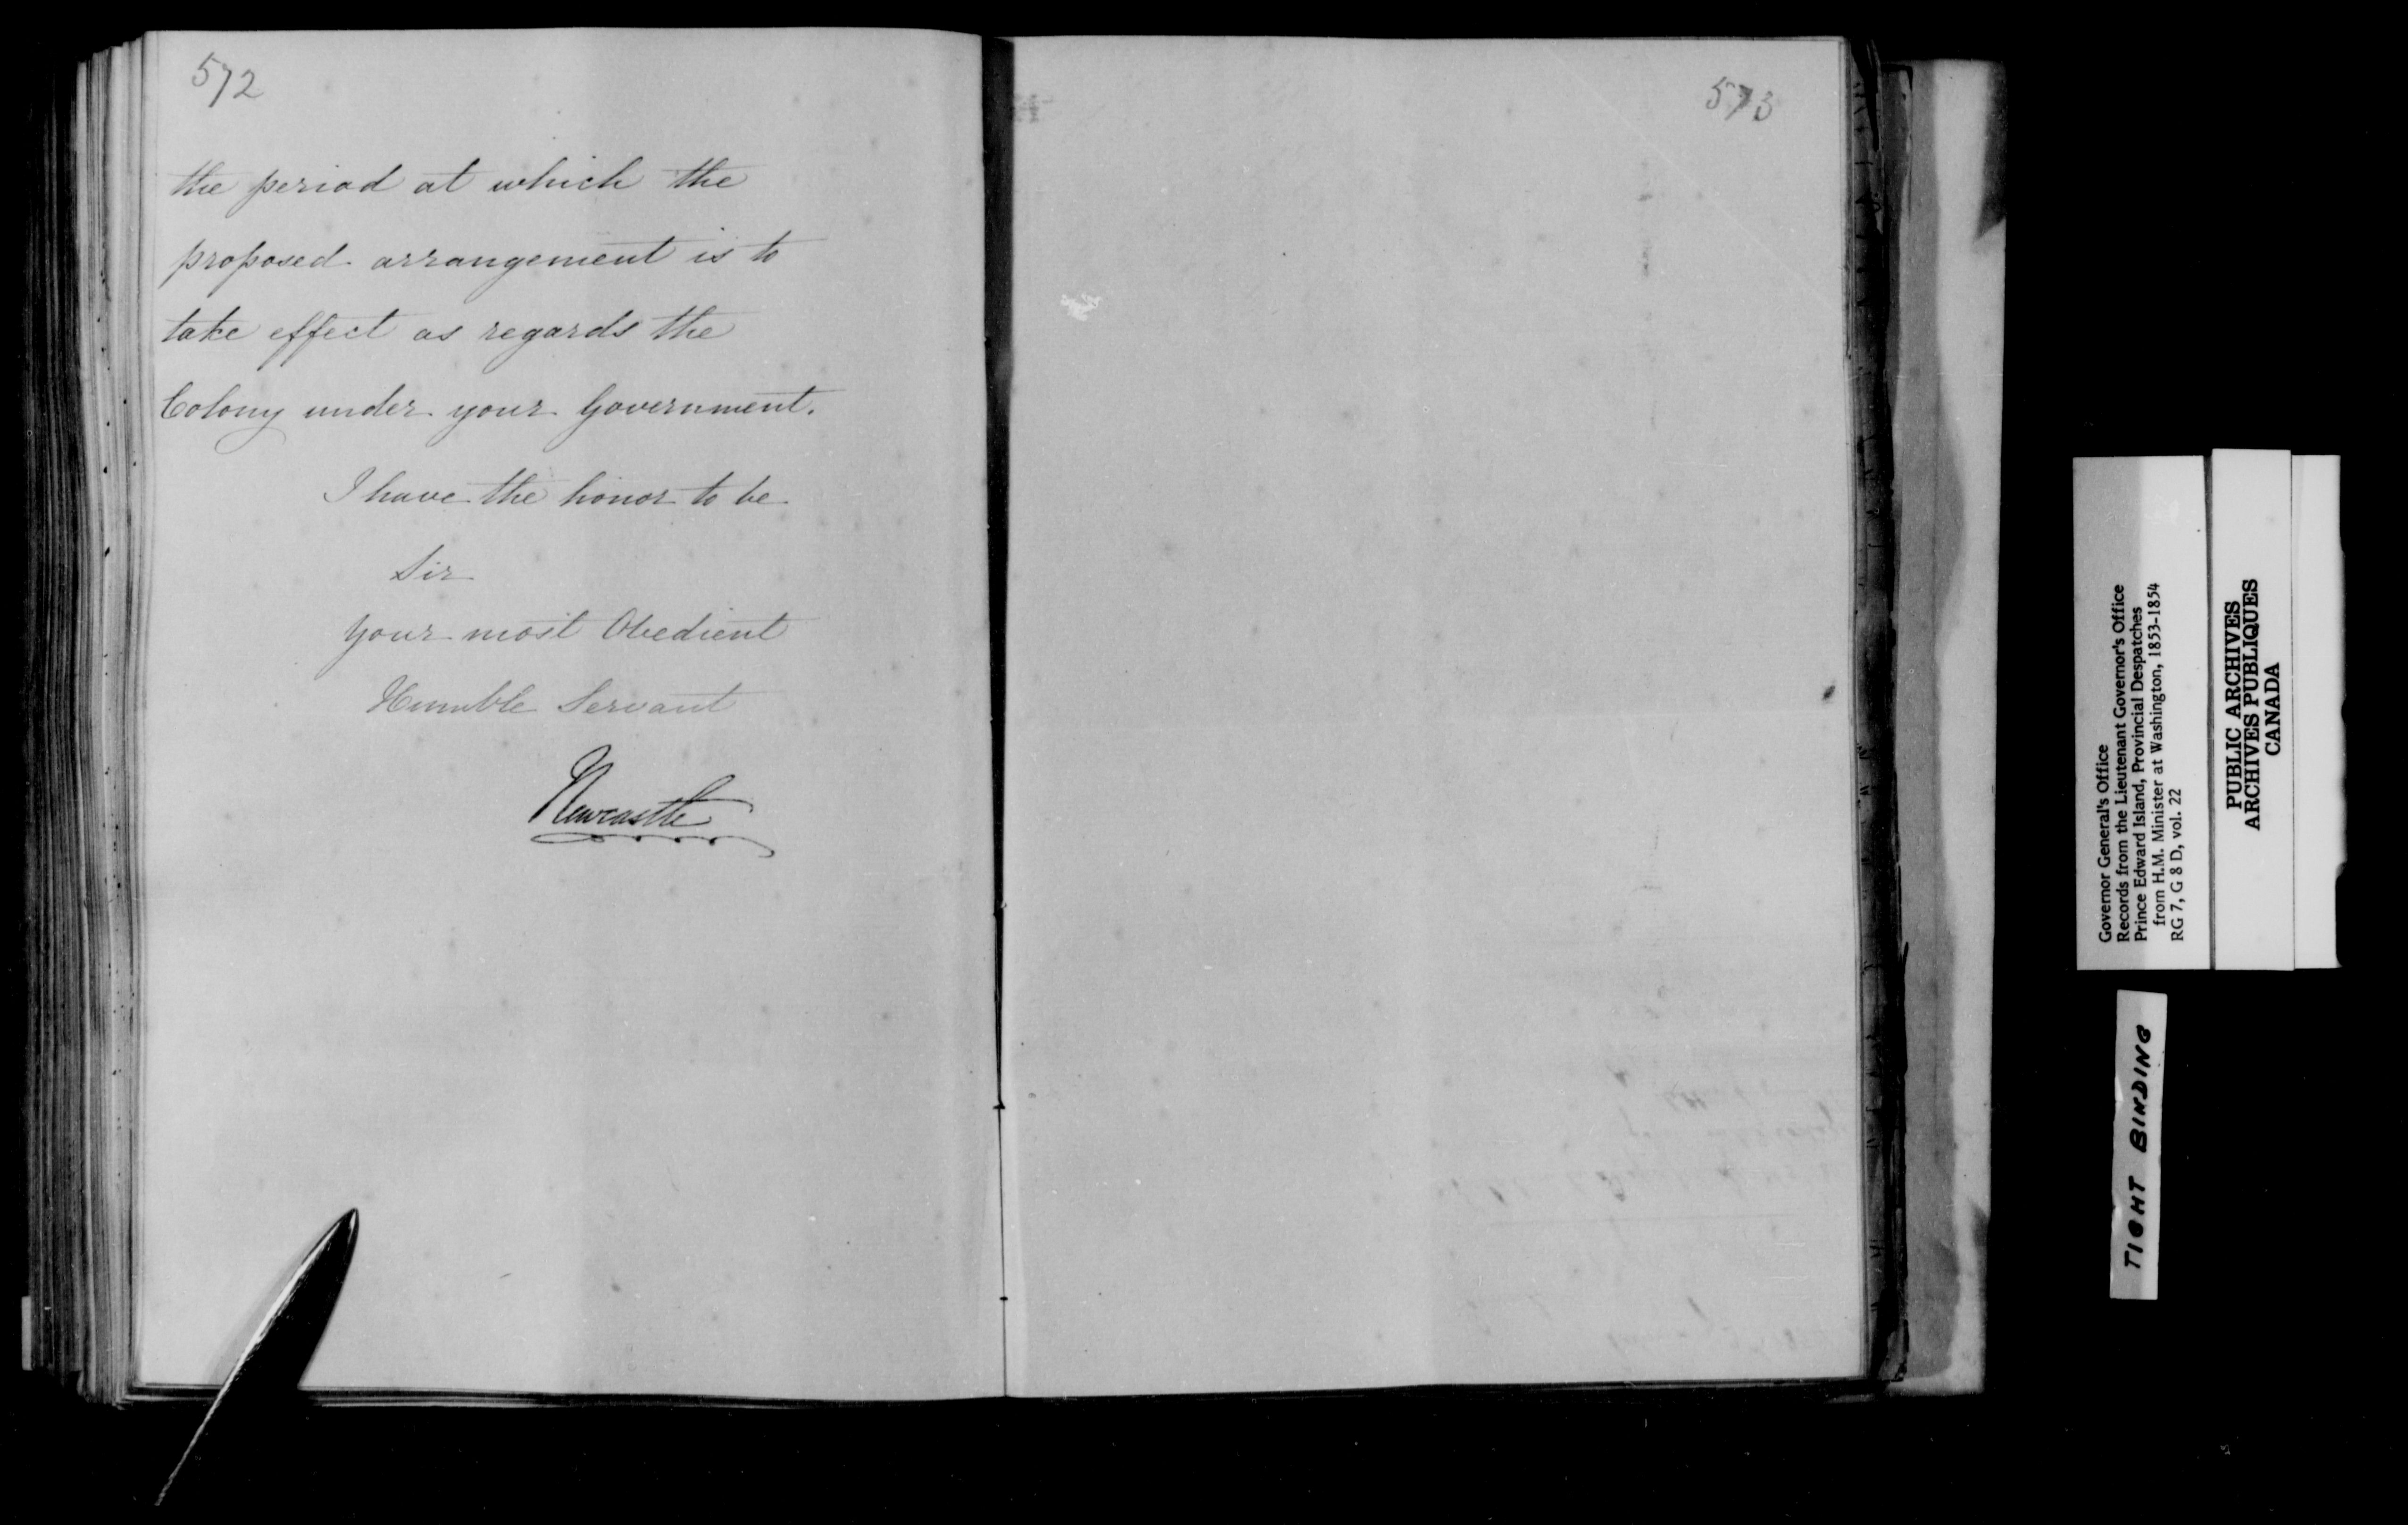 572
the period at which the
proposed arrangement is to
take effect as regards the
Colony under your Government.
I have the honor to be
Sir
Your most Obedient
Humble Servant
Newcastle
573
Governor General's Office
Records from the Lieutenant Governor's Office
Prince Edward Island, Provincial Despatches
from H.M. Minister at Washington, 1853-1854
RG 7, G 8 D, vol. 22
PUBLIC ARCHIVES
ARCHIVES PUBLIQUES
CANADA
TIGHT BINDING